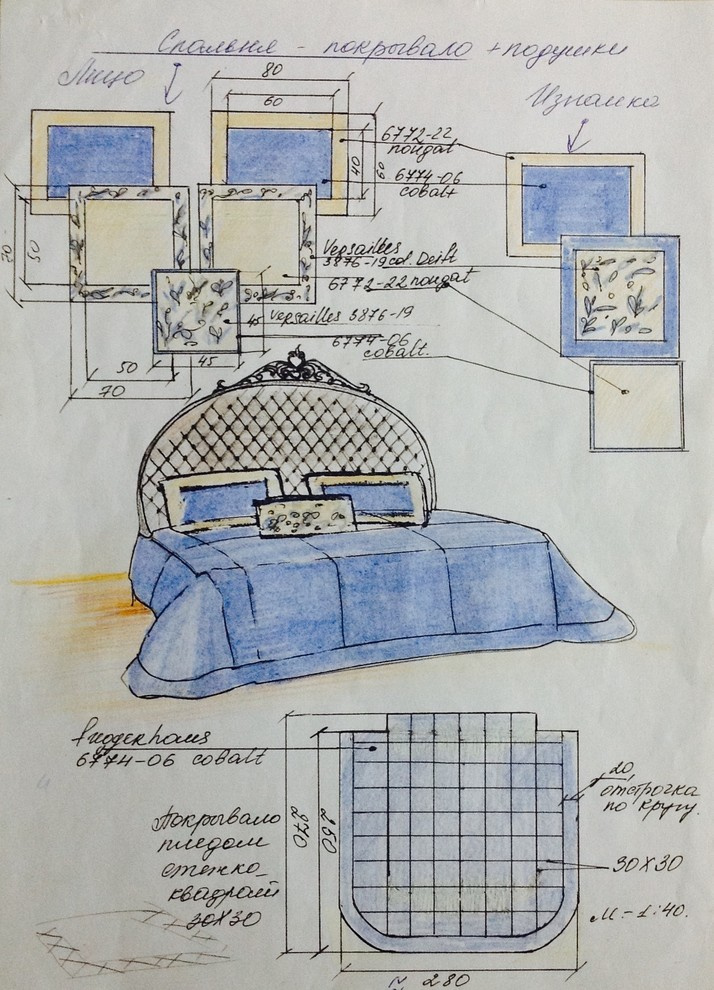 Спальня - покрывало + подушки
Лицо
Изнанка
80
60
6772-22
nougat
40
60
6774-06
cobalt
70
50
Versailles
3876-19 col. Delft
6772-22 nougat
45
Versailles 3876-19
6774-06
cobalt.
50
45
70
6774-06 cobalt
20
отстрочка
по кругу.
270
250
Покрывало
пледом
стежка
квадрат
30X30
30X30
М-1:40.
≈ 280